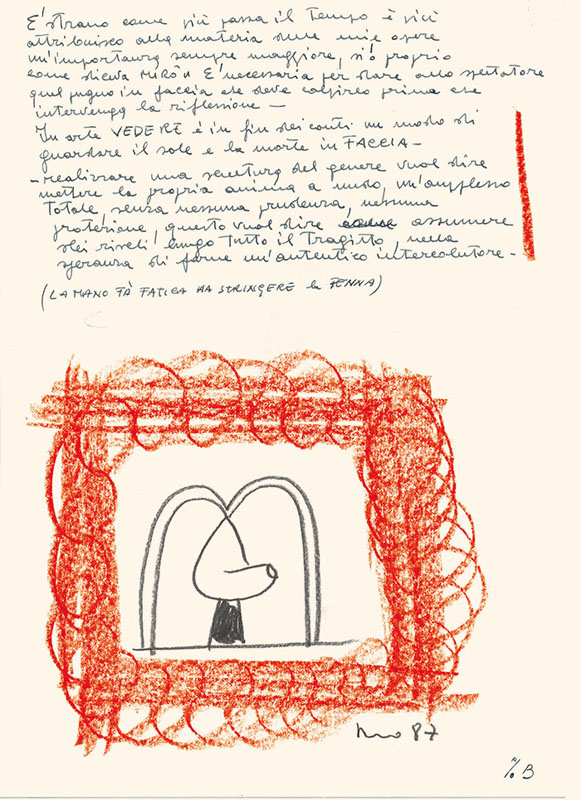 È strano come più passa il tempo e più
attribuisco alla materia delle mie opere
un'importanza sempre maggiore, sì proprio
come diceva MIRÒ È necessaria per dare allo spettatore
quel pugno in faccia che deve colpirlo prima che
intervenga la riflessione —
In arte VEDERE è in fin dei conti un modo di
guardare il sole e la morte in FACCIA —
- realizzare una scultura del genere vuol dire
mettere la propria anima a nudo, un'amplesso
Totale, senza nessuna prudenza, nessuna
protezione, questo vuol dire assumere
dei rischi lungo Tutto il Tragitto, nella
speranza di farne un'autentico interlocutore -
(LA MANO FÀ FATICA HA STRINGERE la PENNA)
87
% B